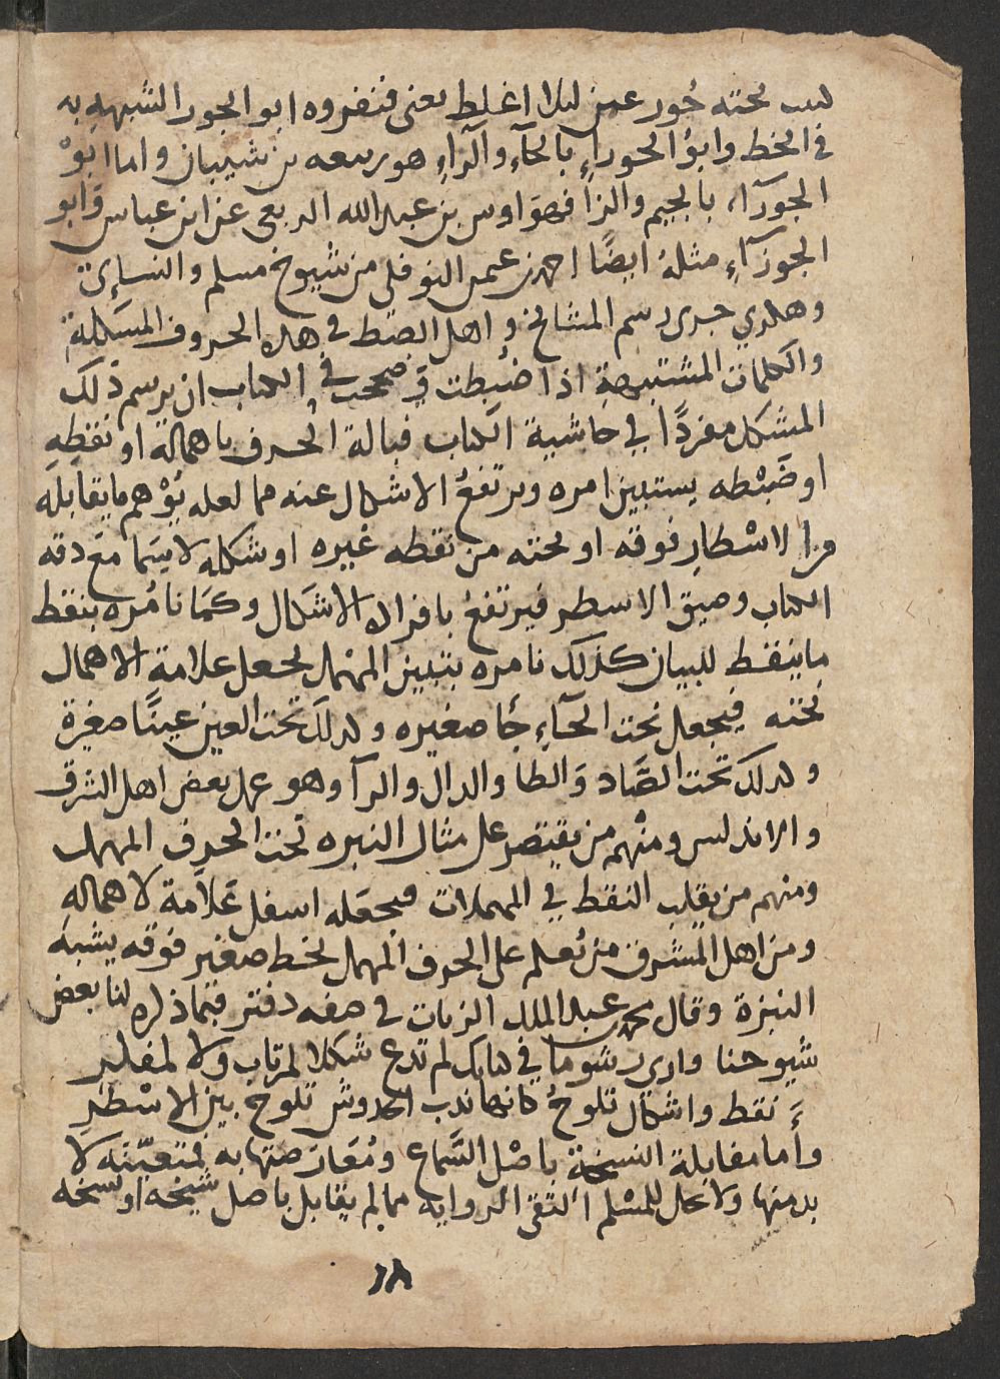 كتبت تحته حور عين ليلا اغلط يعني فنقروه ابو الجوزا لشبهه به
في الخط وابو الحوراء بالحاء والراء هو ربيعه بن شيبان واما ابو
الجوزاء بالجيم والزا فهو اوس بن عبد الله الربعي عن ابن عباس وابو
الجوزاء مثله ايضا احمد بن عمر النوفلي من شيوخ مسلم والنسايى
وهكذي جرى رسم المشائخ و اهل الضبط في هذه الحروف المشكلة
والكلمات المشتبهة اذا ضبطت وصححت في الكتاب ان يرسم ذلك
المشكل مفردا في حاشية الكتاب قبالة الحرف باهماله او نقطه
او ضبطه يستبين امره ويرتفع الاشكال عنه مما لعله يوهم ما يقابله
من الاسطار فوقه او تحته من نقطه غيره او شكله لا سيما مع دقه
الكتاب وضيق الاسطر فيرتفع بافراده الاشكال وكما نامره بنقط
ما ينقط للبيان كذلك نامره بتبيين المهمل بجعل علامة الاهمال
تحته فيجعل تحت الحاء حا صغيره وكذلك تحت العين عينا صغيرة
وكذلك تحت الصاد والطا والدال والرآ وهو عمل بعض اهل الشرق
والاندلس ومنهم من يقتصر على مثال النبره تحت الحرف المهمل
ومنهم من يقلب النقط في المهملات فيجعله اسفل علامة لاهماله
ومن اهل المشرق من يعلم على الحرف المهمل بخط صغير فوقه يشبه
النبرة وقال محمد بن عبد الملك الزيات في صفه دفتر فيما ذكره لنا بعض
شيوخنا وارى رشوما في كتابك لم تدع شكا لمرتاب ولا لمفكر
نقط واشكال تلوح كانها ندب الخدوش تلوح بين الاسطر
واما مقابلة النسخة باصل السماع ومعارضتها به فمتعينه لا
بد منها ولا يحل للمسلم التقي الروايه مما لم يقابل باصل شيخه او نسخه
١٨